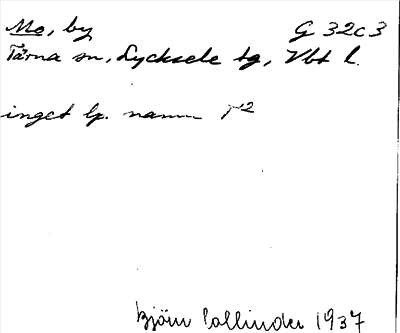 Mo, by G 32c3
Tärna sn, Lycksele tg, Vbt l.
inget lp. namn
Björn Collinder 1937